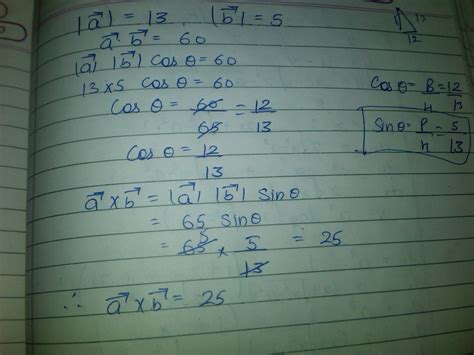 |a⃗| = 13 , |b⃗| = 5
a⃗ b⃗ = 60
|a⃗| |b⃗| cos θ = 60
13 x 5 cos θ = 60
cos θ = 60/65 = 12/13
cos θ = 12/13
a⃗ x b⃗ = |a⃗| |b⃗| sin θ
= 65 sin θ
= 65 5 x 5/13 = 25
∴ a⃗ x b⃗ = 25
13
12
cos θ = B/H = 12/13
sin θ = P/h = 5/13